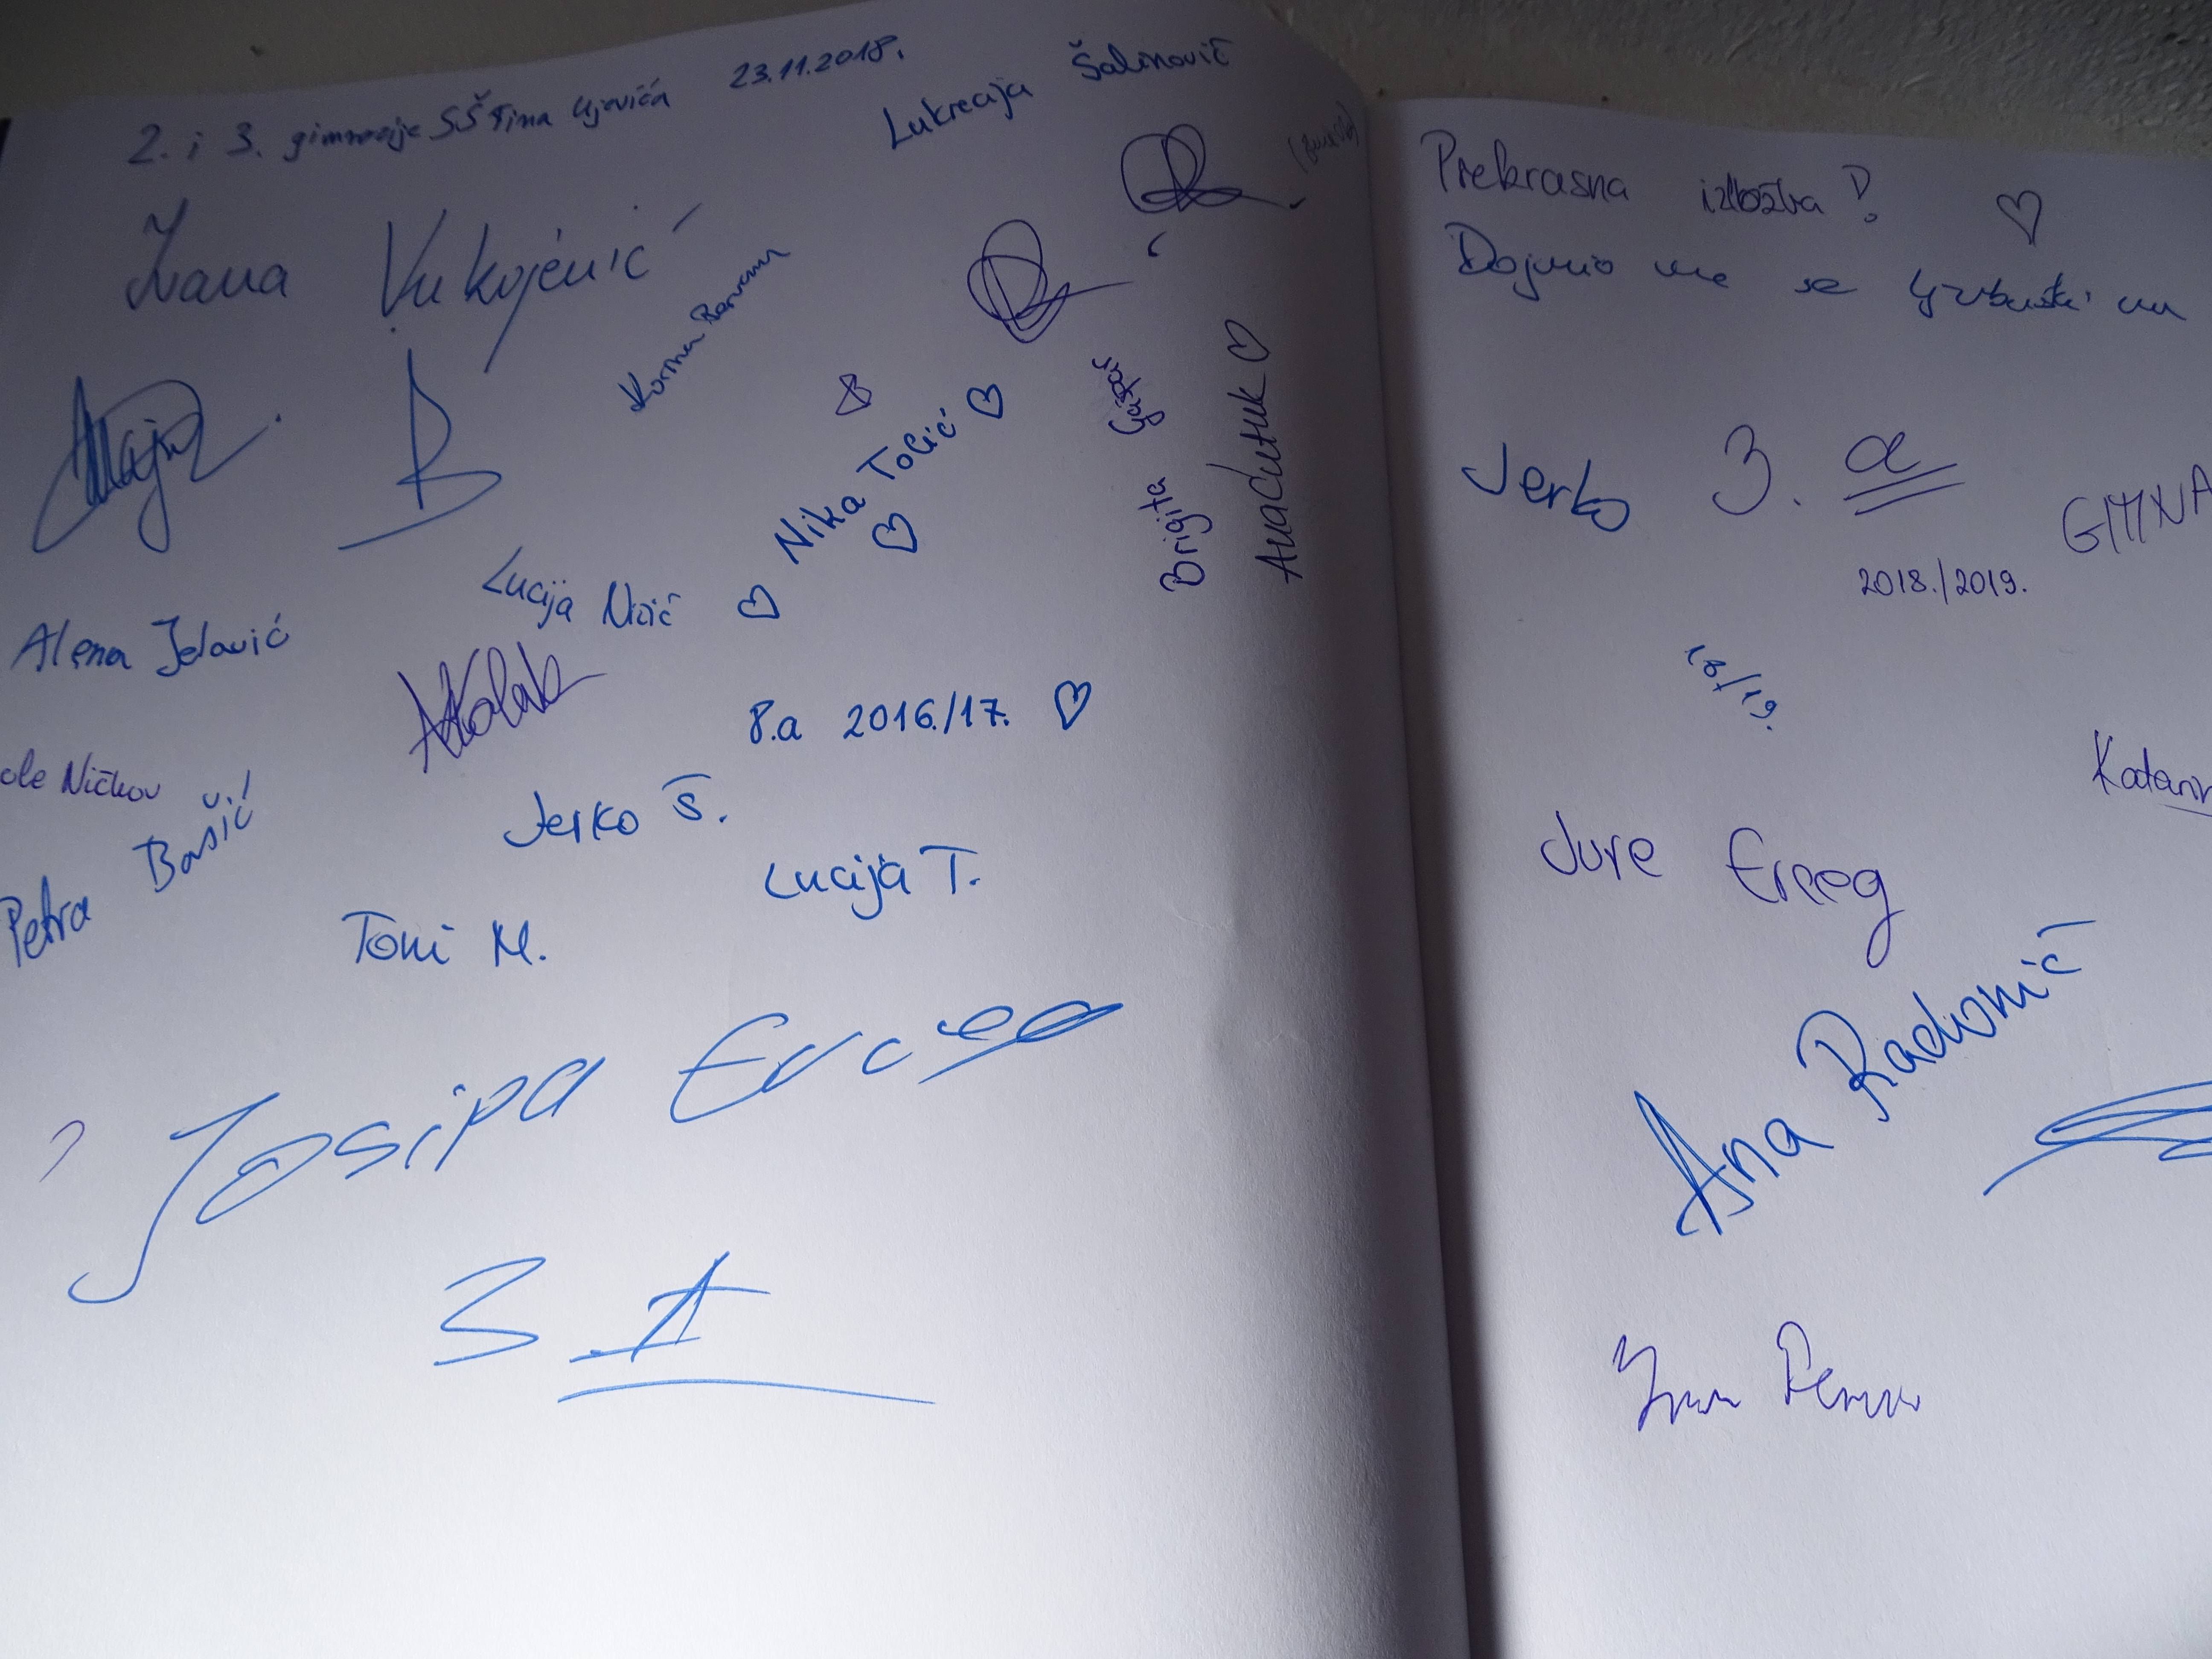 2. i 3. gimnazije SŠ Tina Ujevića 23.11.2018.
Lukrecija Šalinović
Ivana Vukojević
Maja
Nika Tolić ♡
Brigita Gašpar
♡
Lucija Nizić ♡
Alena Jelavić
AKolak
8.a 2016./17. ♡
Ničkov
Petra Basić
Jerko Š.
Lucija T.
Toni M.
Josipa Erceg
3 A
Prekrasna izložba! ♡
Dojmio me se
Jerko 3. a
GIMNA
2018./2019.
18/19.
Katarin
Jure Erceg
Ana Radonić